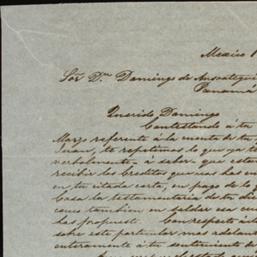 Mexico
Sor. Dn. Domingo de Ansoategui
Panamá
Querido Domingo
Contestando á tu
Marzo referente á la cuenta de tu
Juan, te repetimos lo que ya te
verbalmente, á saber que estam
recibir los Creditos que nos has en
en tu citada carta, en pago de lo q
Casa la testamentaria de tu di
cemos tambien en saldar esa cuen
has propuesto. Con respecto á
sobre este particular mas adelant
enteramente á tu sentimiento de